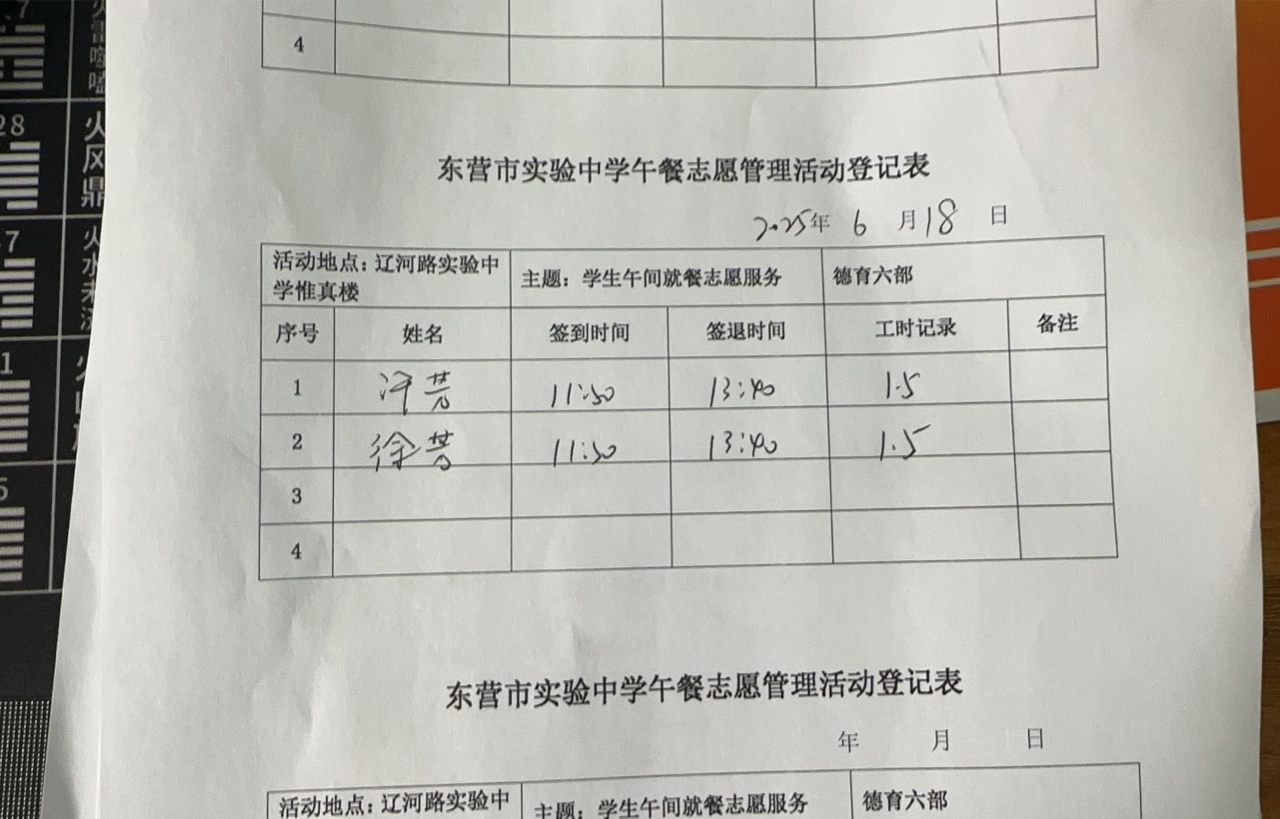 4
东营市实验中学午餐志愿管理活动登记表
2025年 6 月18 日
活动地点：辽河路实验中学惟真楼 主题：学生午间就餐志愿服务 德育六部
序号 姓名 签到时间 签退时间 工时记录 备注
1 11:50 13:40 1.5
2 徐 11:50 13:40 1.5
3
4
东营市实验中学午餐志愿管理活动登记表
年 月 日
活动地点：辽河路实验中 主题：学生午间就餐志愿服务 德育六部
28
火风鼎